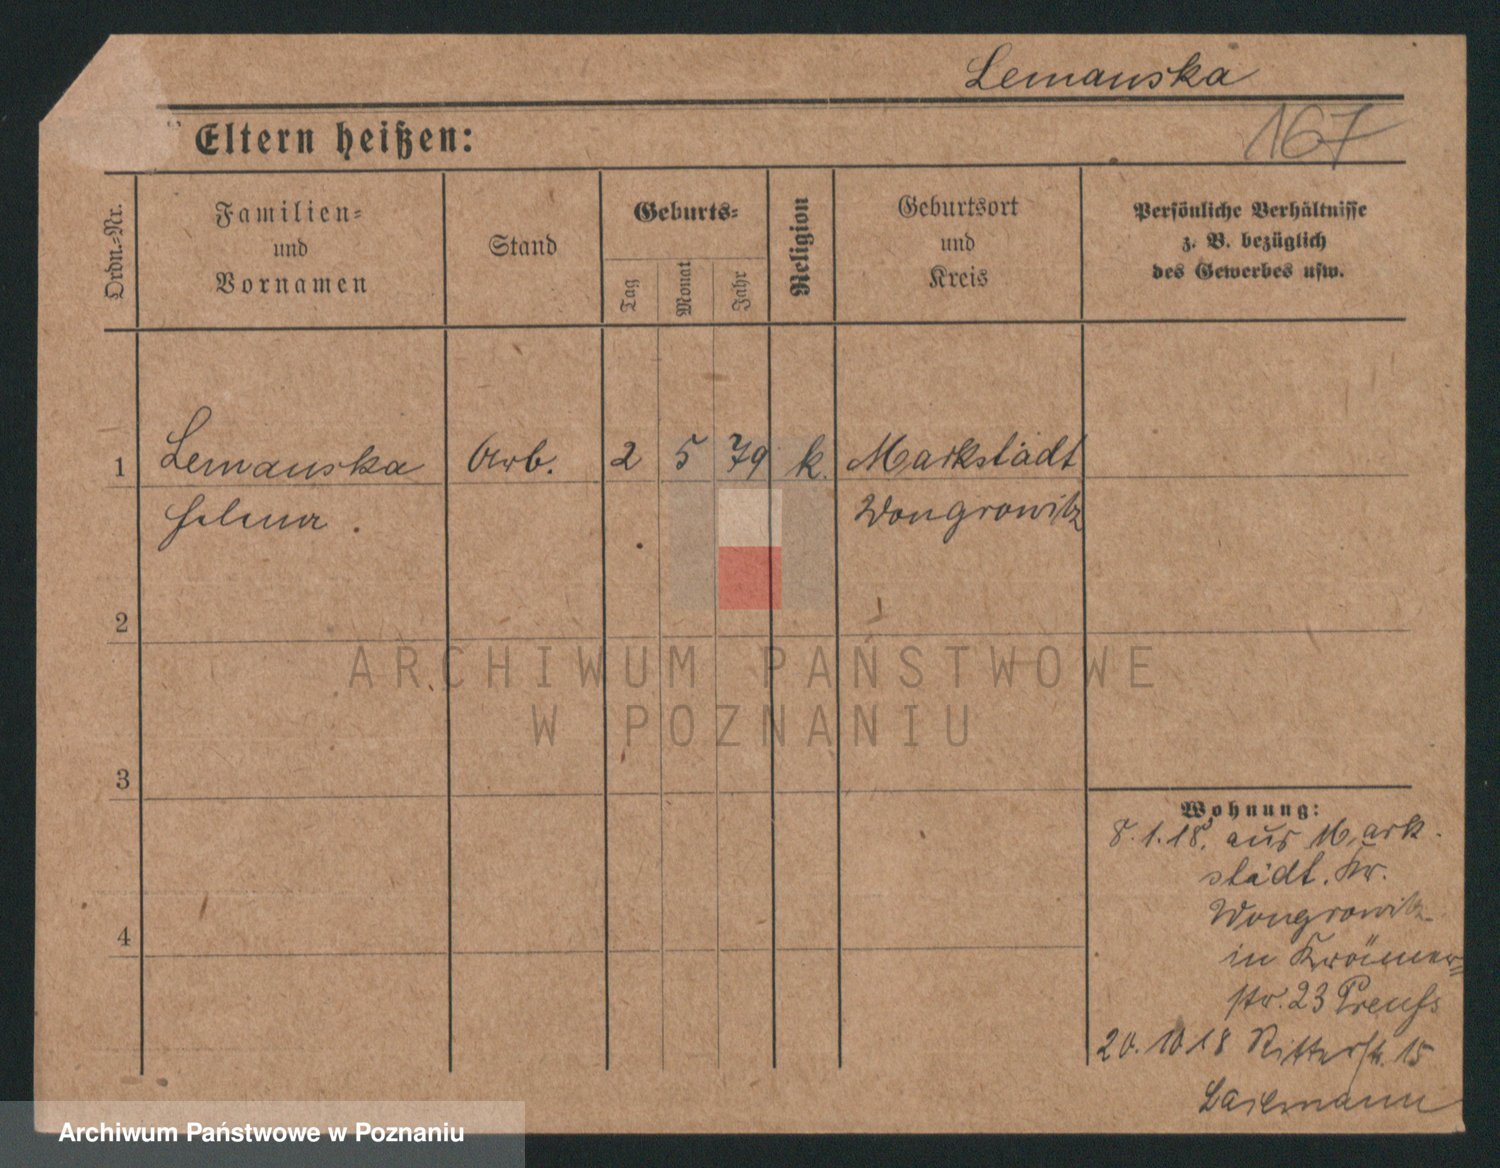 Lemanska
167
Eltern heißen:
Ordn.-Nr.
Familien-
und
Vornamen
Stand
Geburts-
Tag
Monat
Jahr
Religion
Geburtsort
und
Kreis
Persönliche Verhältnisse
z. B. bezüglich
des Gewerbes usw.
1 Lemanska Arb. 2 5 79 k. Markstädt
Helena. Wongrowitz
2
ARCHIWUM PAŃSTWOWE
W POZNANIU
3
4
Wohnung:
8.1.18. aus Mark-
städt. Kr.
Wongrowitz
in Krämer-
str. 23 Preuss
20.10 18 Ritterstr. 15
Archiwum Państwowe w Poznaniu